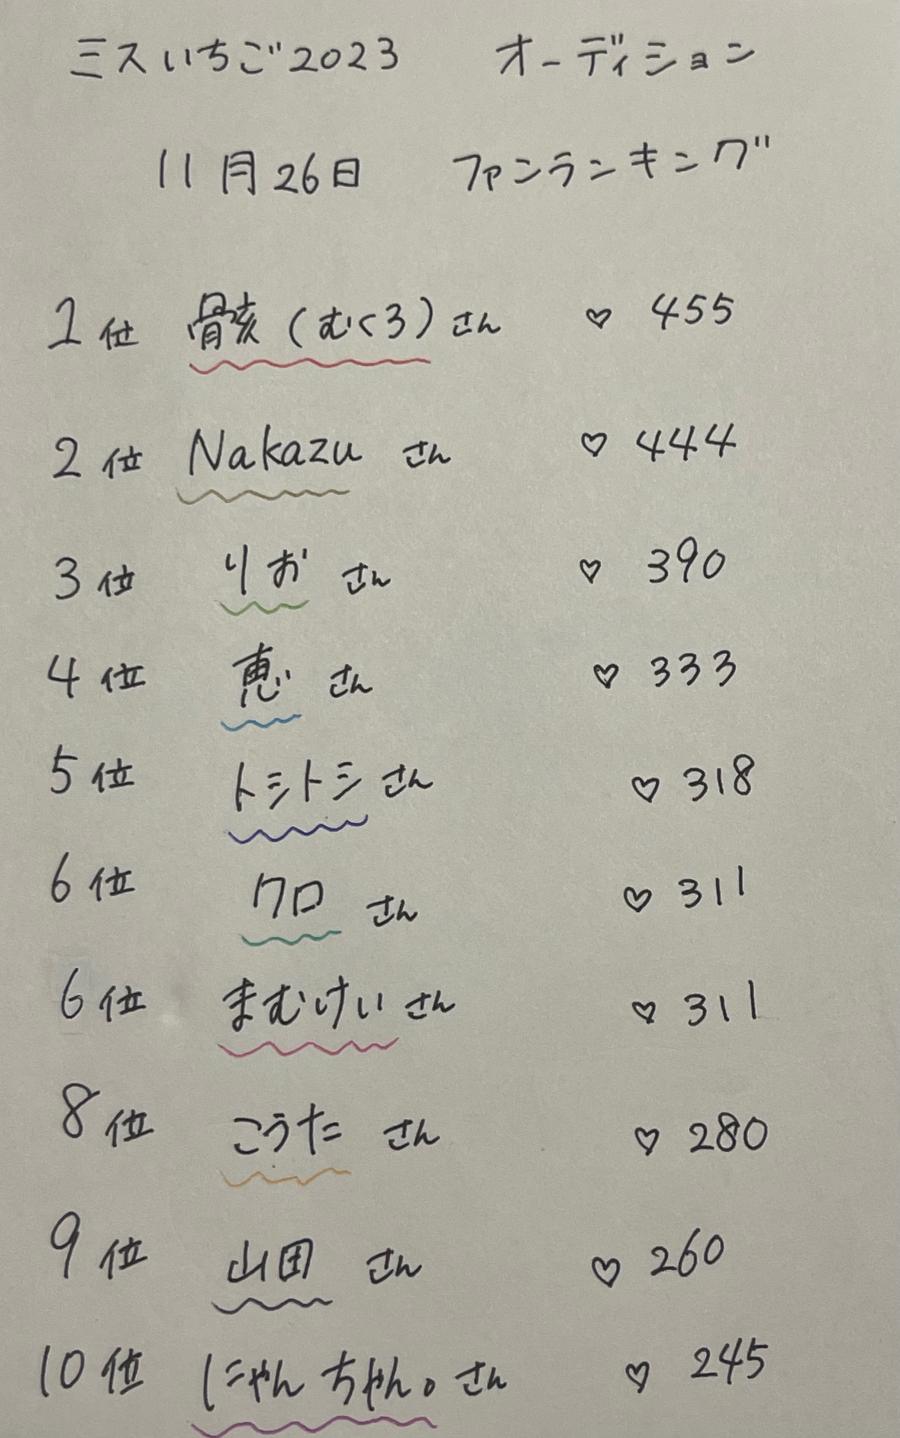 ミスいちご2023 オーディション
11月26日 ファンランキング
1位 骨亥(むくろ)さん ♡ 455
2位 Nakazu さん ♡ 444
3位 りお さん ♡ 390
4位 恵 さん ♡ 333
5位 トシトシさん ♡ 318
6位 クロ さん ♡ 311
6位 まむけい さん ♡ 311
8位 こうた さん ♡ 280
9位 山田 さん ♡ 260
10位 にゃんちゃん。さん ♡ 245